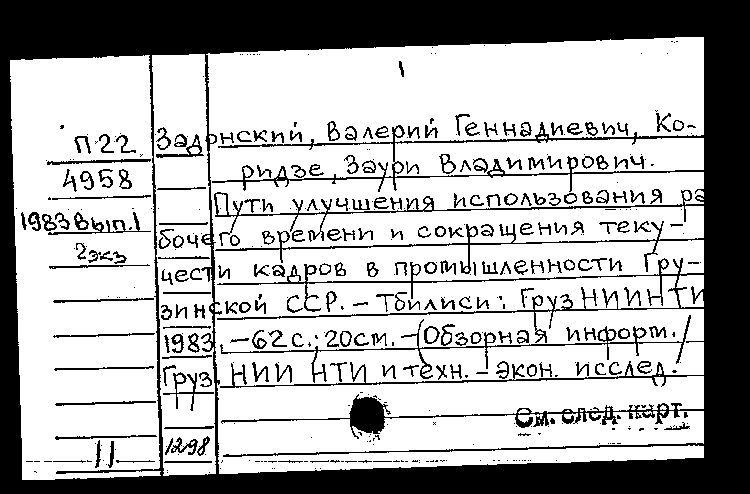 1
П22 Задонский, Валерий Геннадиевич, Ко-
4958 ридзе, Заури Владимирович.
Пути улучшения использования ра
1983 Вып.1
бочего времени и сокращения теку-
2экз
чести кадров в промышленности Гру-
зинской ССР. - Тбилиси: ГрузНИИНТИ
1983. - 62 с.; 20см. - (Обзорная информ./
Груз. НИИ НТИ и техн. - экон. исслед.
См. след. карт.
11 1298